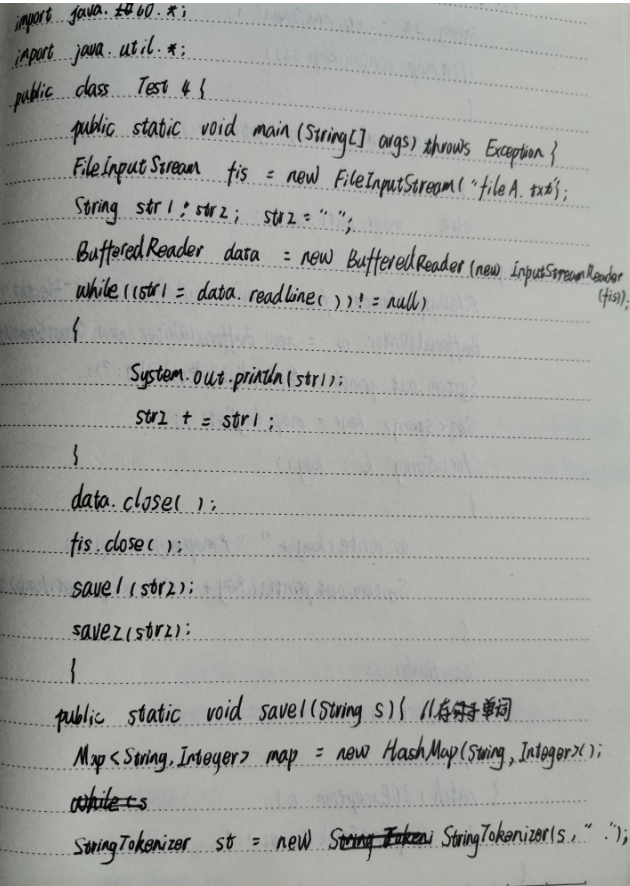 import java.io.*;
import java.util.*;
public class Test 4 {
public static void main (String[] args) throws Exception {
FileInputStream fis = new FileInputStream( "fileA.txt");
String str1; str2; str2 = " ";
BufferedReader data = new BufferedReader (new InputStreamReader
(fis));
while ((str1 = data.readline( )) != null)
{
System.out.println(str1);
str2 += str1;
}
data.close( );
fis.close( );
save1(str2);
save2(str2);
}
public static void save1(String s) { //存单词
Map<String,Integer> map = new HashMap(String,Integer>();
StringTokenizer st = new StringTokenizer(s, " .");